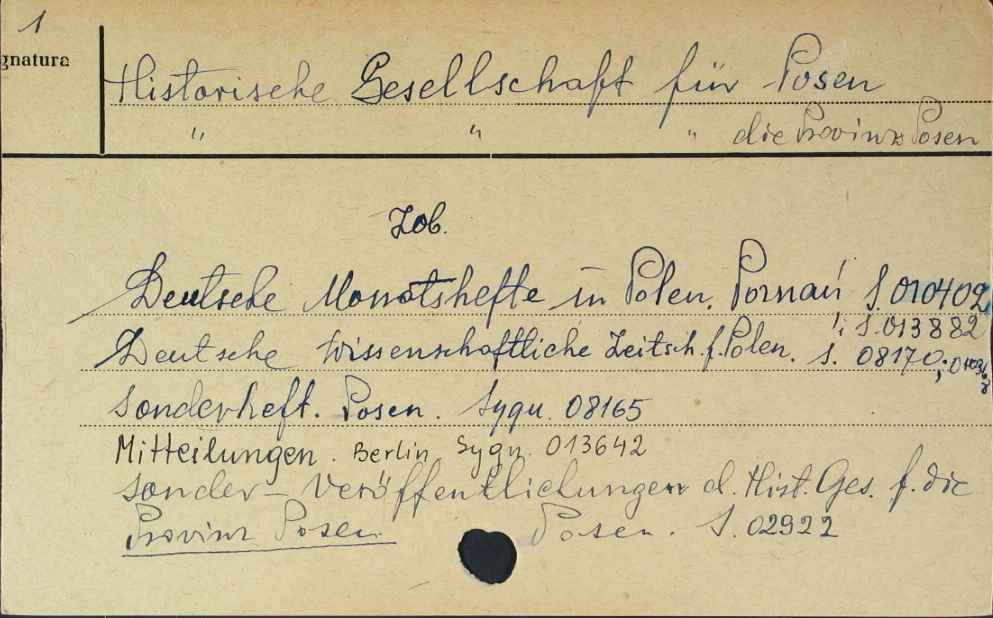 1
gnatura
Historische Gesellschaft für Posen
" " " die Provinz Posen
Zob.
Deutsche Monatshefte in Polen. Poznań S. 010402
!; S. 013882
Deutsche Wissenschaftliche Zeitsch. f. Polen. S. 08170;
Sonderheft. Posen. Sygn. 08165
Mitteilungen. Berlin Sygn. 013642
Sonder-Veröffentlichungen d. Hist. Ges. f. die
Provinz Posen. Posen. S. 02922